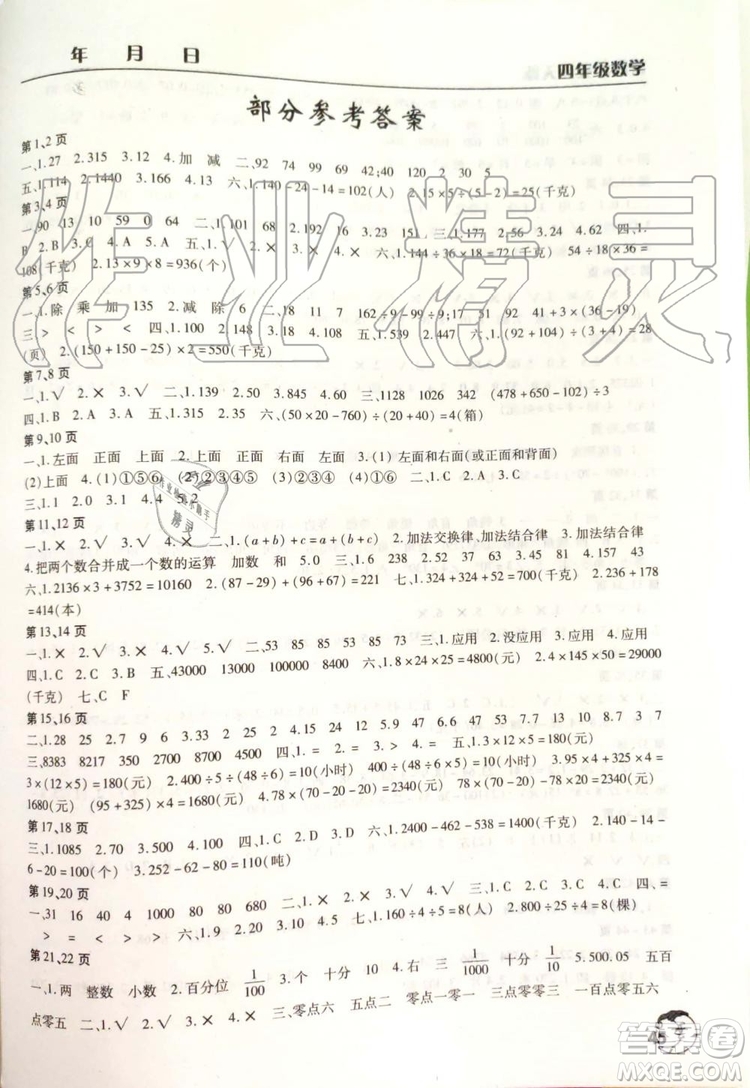 年 月 日
四年级数学
部分参考答案
第1、2页
一、1.27 2.315 3.12 4.加 减 二、92 74 99 42;40 120 2 30 5
五、1.114 2.1440 3.166 4.13 六、1.140-24-14=102(人) 2.15×5÷(5-2)=25(千克)
第3、4页
一、90 13 10 59 0 64 二、1.101 68 2.192 16 三、1.177 2.56 3.24 4.62 四、1.
B 2.B 3.C 4.A 5.A 五、1.√ 2.× 3.× 4.× 六、1.144÷36×18=72(千克) 54÷18×36=
108(千克) 2.13×9×8=936(个)
第5、6页
一、1.除 乘 加 135 2.减 除 6 二、18 11 7
三、> < > < 四、1.100 2.148 3.18 五、1.35 2.447 六、1.(92+104)÷(3+4)=28
(页) 2.(150+150-25)×2=550(千克)
第7、8页
一、1.× 2.× 3.√ 二、1.139 2.50 3.845 4.60 三、1128 1026 342 (478+650)-(102-2)
四、1.B 2.A 3.A 五、1.315 2.35 六、(50×20-760)÷(20+40)=4(箱)
第9、10页
一、1.左面 正面 上面 2.正面 右面 左面 上面 3.(1)左面和右面(或正面和背面)
(2)上面 4.(1)①⑤⑥ (2)②③④⑤ (3)②③④⑤⑥
三、1.1 2.0 4.4 5.2
第11、12页
一、1.√ 2.√ 3.× 4.× 二、1.(a+b)+c=a+(b+c) 2.加法交换律、加法结合律 3.加法结合律
4.把两个数合并成一个数的运算 加数 和 5.0 三、1.6 238 2.52 37 63 3.41 85 4.157 43
六、1.2136×3+3752=10160 2.(87-29)+(87-16)=129 七、1.(324+324+52)=700(千克) 2.(180-42)×3
=414(本)
第13、14页
一、1.× 2.√ 3.× 4.√ 二、53 85 53 85 73 三、1.应用 2.没应用 3.应用
四、1.C 2.C 3.A 五、43000 13000 1100 18000 六、1.8×24×25=4800(元) 2.4×145×50=29000
(千克) 七、C F
第15、16页
二、1.28 25 2.7 25 2 4.15 24 二、2.5 9 4.7 9 6.6 47 53 7.7 13 10 8.10 45 7
三、8383 8217 350 2700 8700 四、1.× 2.√ 3.√ 4.× 五、1.3×(12×5)=180(元) 3×12×5=
3×(12×5)=180(元) 2.400÷5÷(48÷6)=10(小时) 400÷(48÷6×5)=10(小时) 3.(325+95)×4=
1680(元) (95+325)×4=1680(元) 4.78×(20-20÷5×4)=312(元) 78×(20÷5)=312(元)
第17、18页
一、1.1085 2.70 3.500 4.100 四、1.C 2.D 3.D 六、1.2400-462-538=1400(千克) 2.140-14-
6-20=100(个) 3.252-62-80=110(吨)
第19、20页
一、31 16 40 4 1000 80 80 680 二、1.× 2.√ 3.√ 4.√ 三、1.C 2.A 3.C 4.C 四、=
> = < > > 五、1.9 2.20 六、1.160÷4÷5=8(人) 2.800÷25÷4=8(棵)
第21、22页
一、1.两 整数 小数 2.百分位 1/100 3.个 十分 10 4.右 三 1/1000 十分 1/10 5.500.05 五百
点零五 二、1.√ 2.√ 3.√ 4.× 三、零点六 五点二 零点一零一 三点零零三 一百点零五六
45
作业精灵
答案圈
MXQE.COM